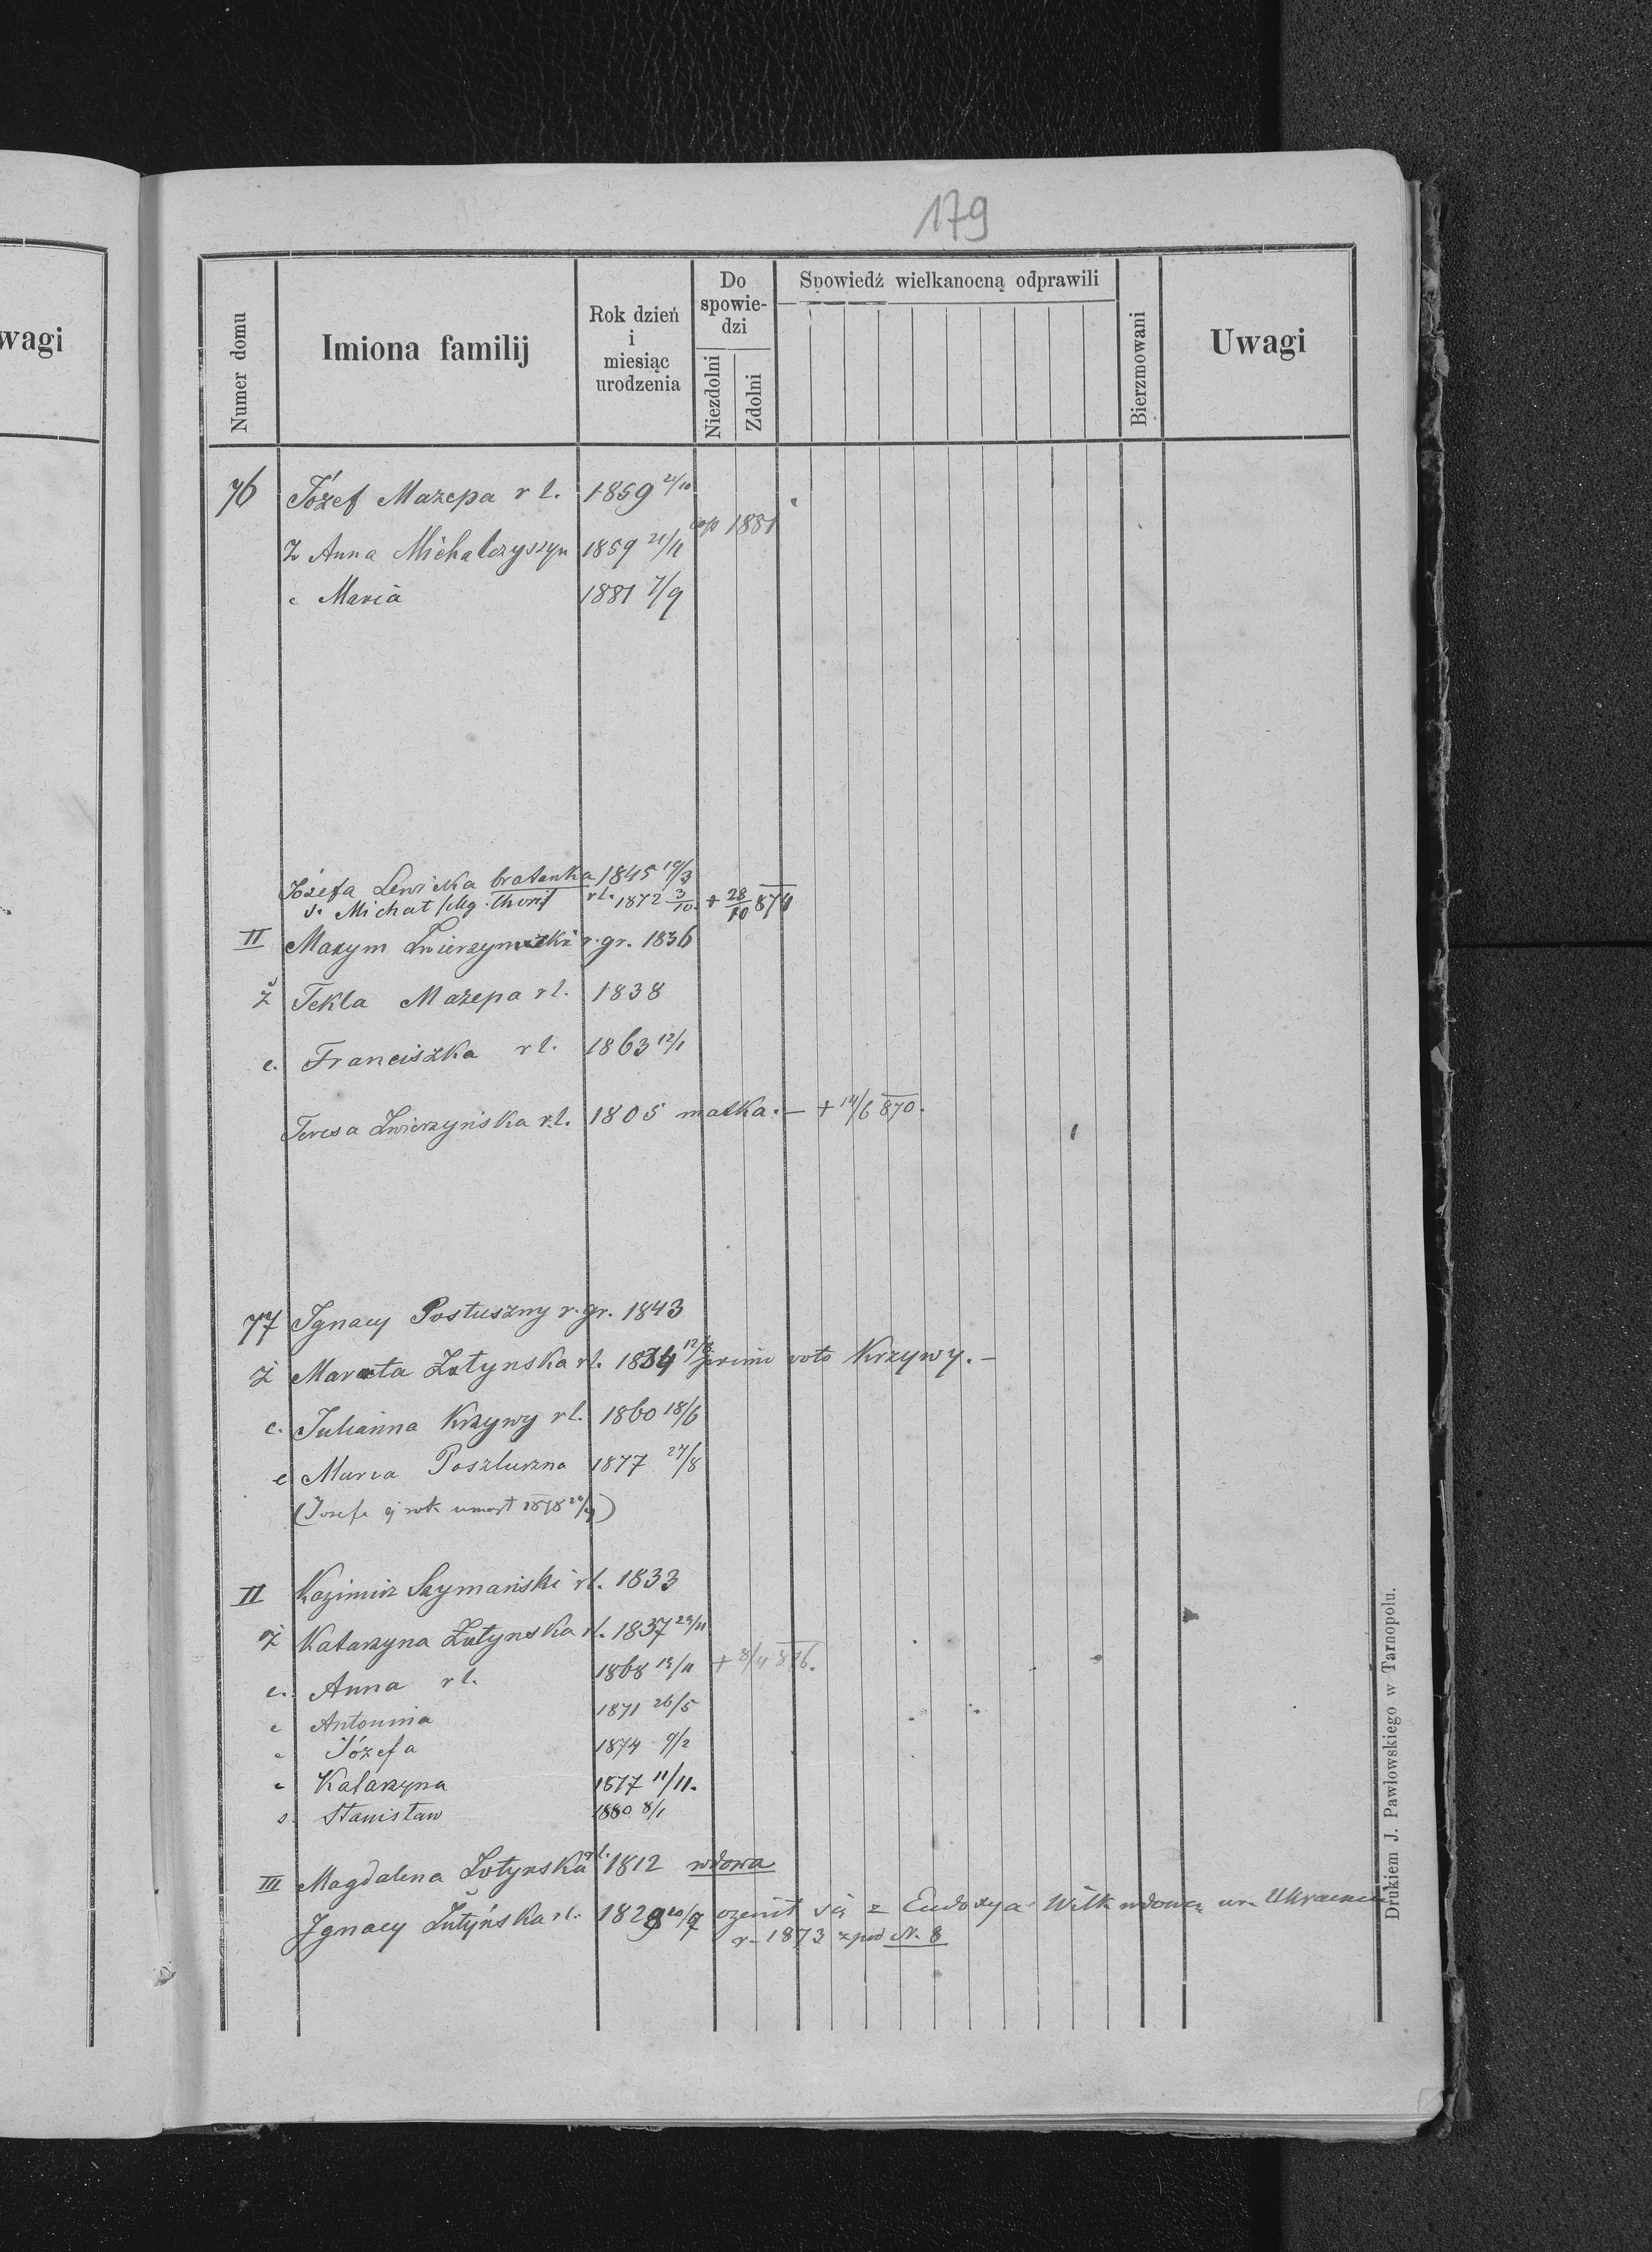 179
wagi
Numer domu
Imiona familij
Rok dzień i miesiąc urodzenia
Do spowiedzi
Niezdolni
Zdolni
Spowiedź wielkanocną odprawili
Bierzmowani
Uwagi
76 Józef Mazepa rl. 1859 21/10
cop 1881
ż Anna Michalczyszyn 1859 21/11
c Maria 1881 7/9
Józefa Lewicka bratanka 1845 19/3
s. Michał illeg. thori rl. 1872 3/10. + 28/10 874
II Maxym Zwierzynski r. gr. 1836
ż Tekla Mazepa rl. 1838
c. Franciszka rl. 1863 12/1
Teresa Zwierzyńska rl. 1805 matka. — + 14/6 870.
77 Ignacy Postuszny r. gr. 1843
ż Marta Zotynska rl. 1834 primo voto Krzywy. —
c. Julianna Krzywy rl. 1860 18/6
c Maria Poszluszna 1877 27/8
(Josefa rok umart 1878)
II Kazimirz Szymański rl. 1833
ż Katarzyna Zotynska rl. 1837 29/11
c. Anna rl. 1868 13/11 + 8/4 876.
c Antonina 1871 26/5
c Józefa 1874 9/2
c Katarzyna 1877 11/11.
s. Stanisław 1880 8/1
III Magdalena Zotynska rl. 1812 wdowa
Ignacy Zutyńska rl. 1829 ożenił się z Eudoxya Wilk wdową
r. 1873 z pod N. 8
Drukiem J. Pawłowskiego w Tarnopolu.